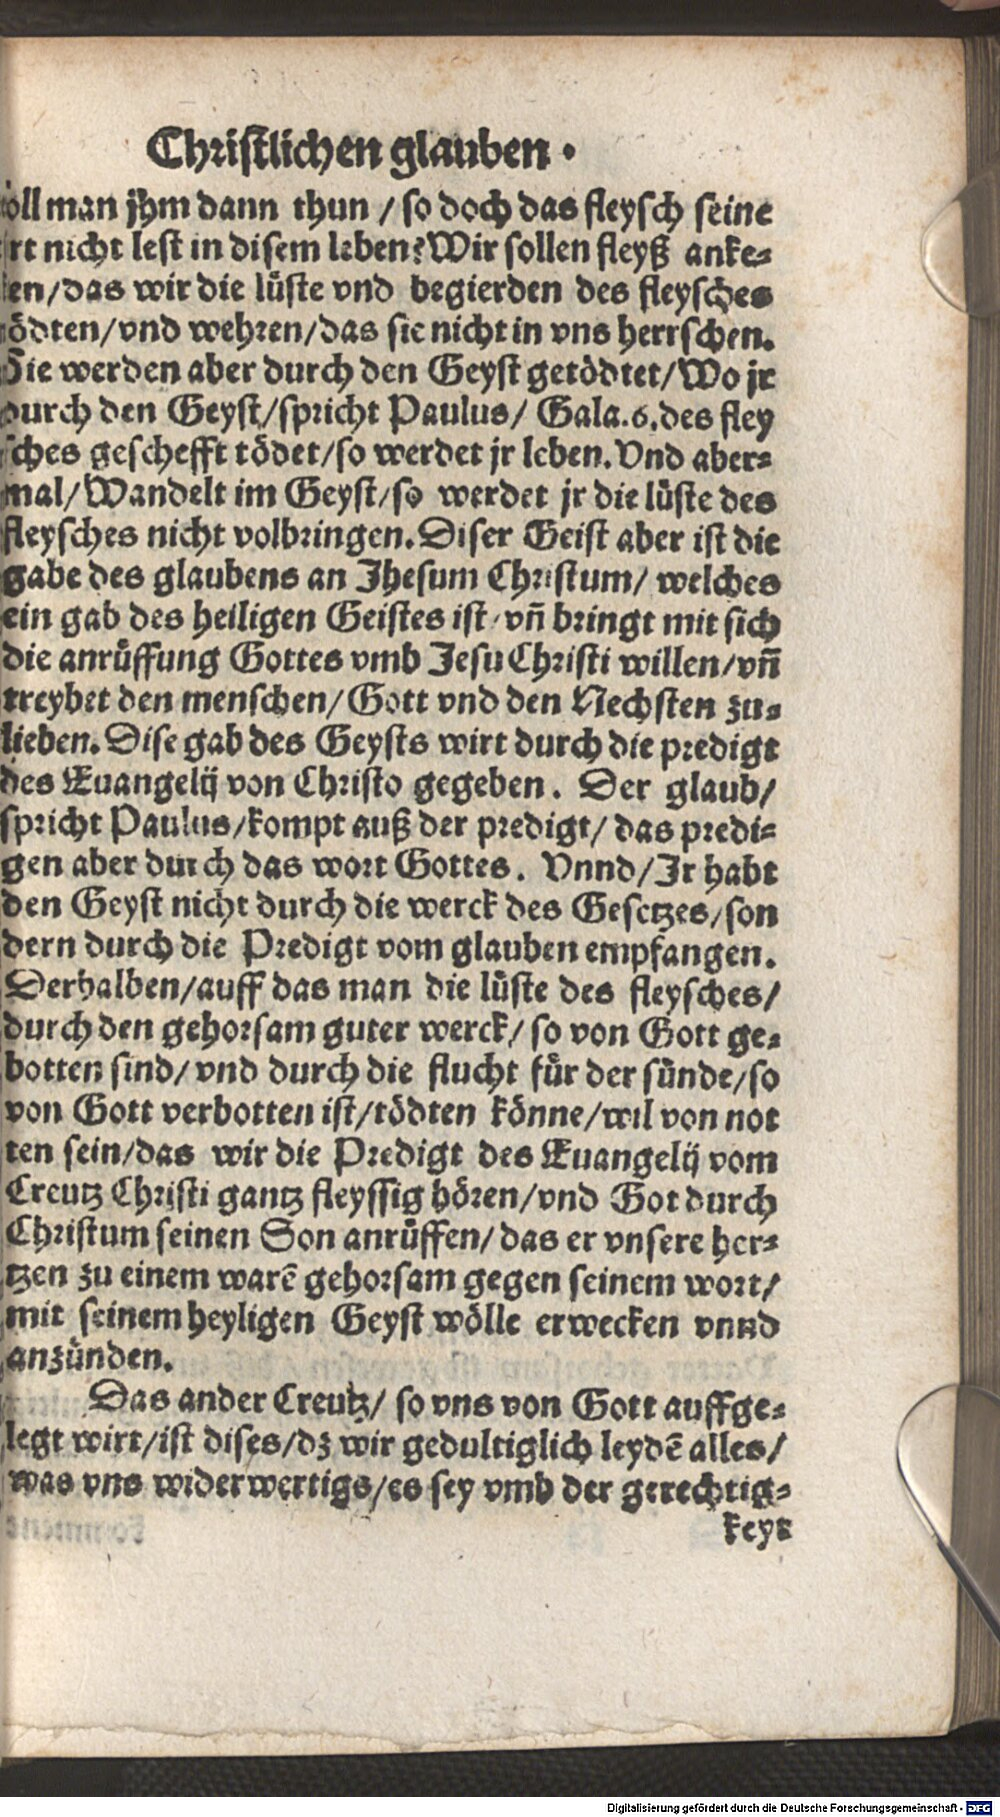 Christlichen glauben.
soll man jhm dann thun / so doch das fleysch seine
art nicht lest in disem leben? Wir sollen fleyß anke-
ren/das wir die lüste vnd begierden des fleysches
tödten/vnd wehren/das sie nicht in vns herrschen.
Sie werden aber durch den Geyst getödtet/Wo jr
durch den Geyst/spricht Paulus/ Gala.6.des fley
sches geschefft tödet/so werdet jr leben. Vnd aber-
mal/Wandelt im Geyst/so werdet jr die lüste des
fleysches nicht volbringen. Diser Geist aber ist die
gabe des glaubens an Jhesum Christum/ welches
ein gab des heiligen Geistes ist/vñ bringt mit sich
die anrüffung Gottes vmb Jesu Christi willen/vñ
treybet den menschen/Gott vnd den Nechsten zu-
lieben. Dise gab des Geysts wirt durch die predigt
des Euangelij von Christo gegeben. Der glaub/
spricht Paulus/kompt auß der predigt/ das predi-
gen aber durch das wort Gottes. Vnnd/Jr habt
den Geyst nicht durch die werck des Gesetzes/son
dern durch die Predigt vom glauben empfangen.
Derhalben/auff das man die lüste des fleysches/
durch den gehorsam guter werck/ so von Gott ge-
botten sind/vnd durch die flucht für der sünde/so
von Gott verbotten ist/tödten könne/wil von not
ten sein/das wir die Predigt des Euangelij vom
Creutz Christi gantz fleyssig hören/vnd Got durch
Christum seinen Son anrüffen/das er vnsere her-
tzen zu einem warē gehorsam gegen seinem wort/
mit seinem heyligen Geyst wölle erwecken vnnd
anzünden.
Das ander Creutz/ so vns von Gott auffge-
legt wirt/ist dises/dz wir gedultiglich leydē alles/
was vns widerwertigs/es sey vmb der gerechtig-
keyt
Digitalisierung gefördert durch die Deutsche Forschungsgemeinschaft - DFG